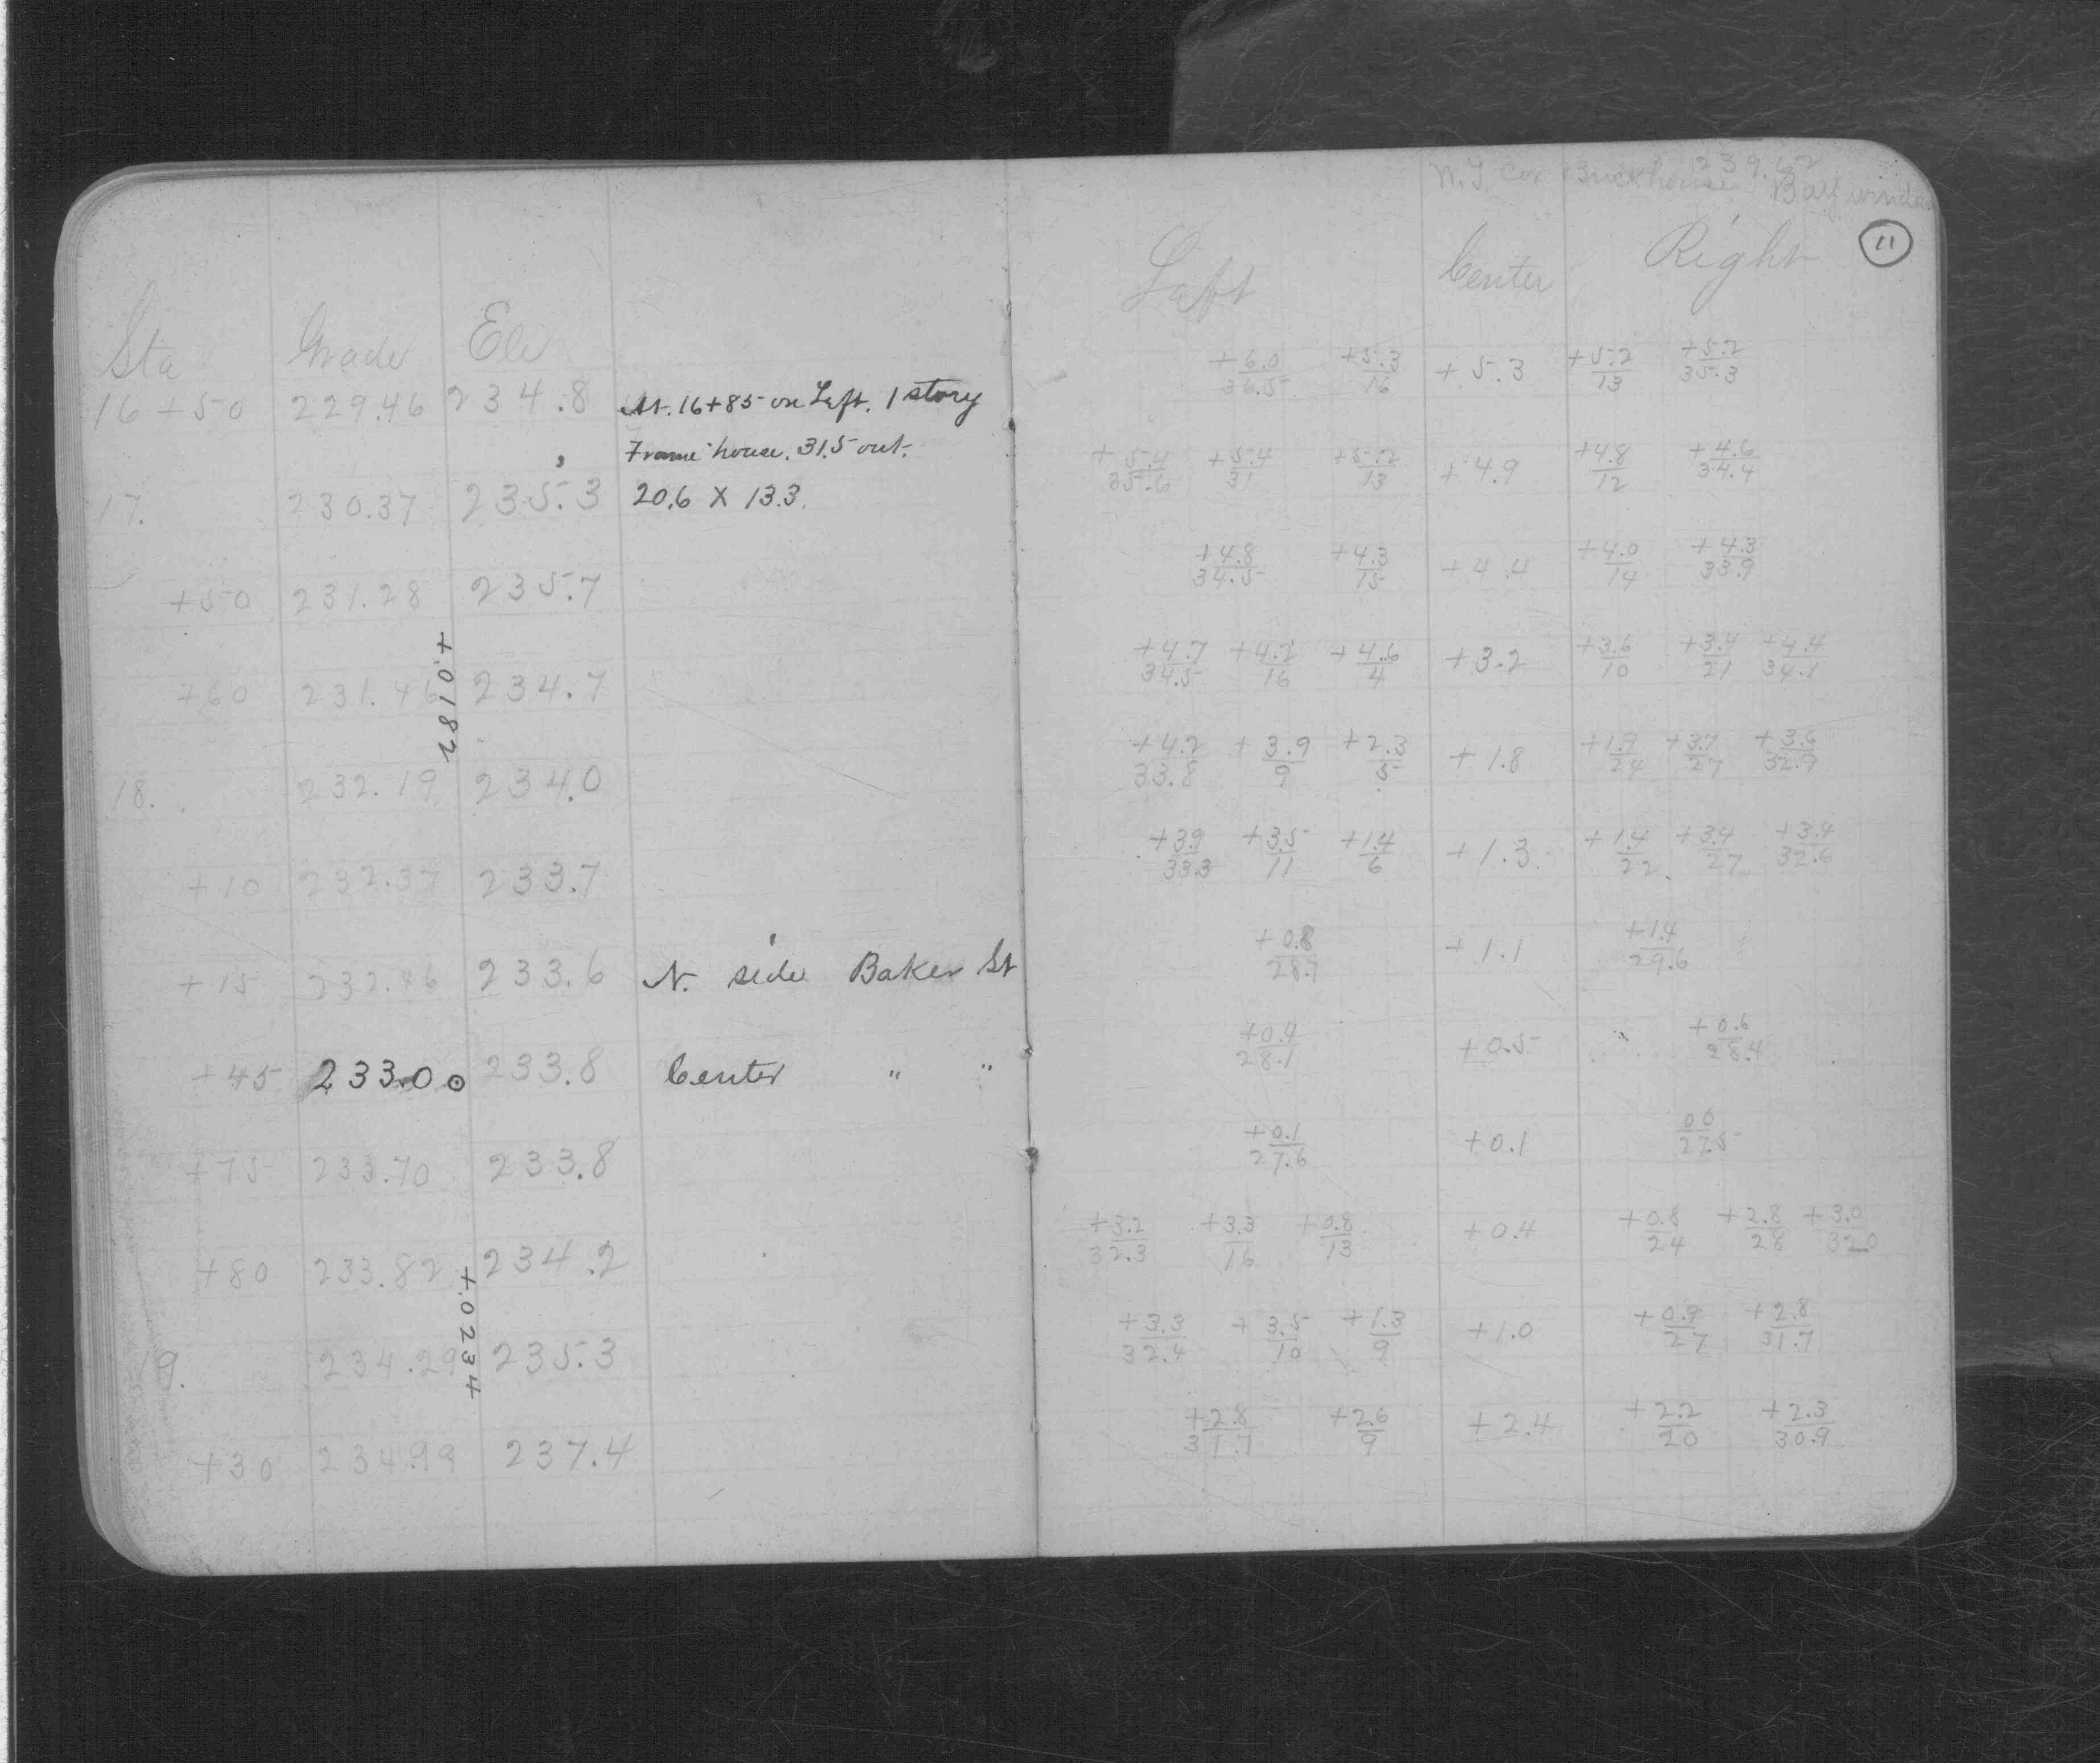 Sta Grade Ele
16 +50 229.46 234.8 At. 16+85 on Left. 1 story
Frame house. 31.5 out.
17. 230.37 235.3 20.6 X 13.3.
+50 231.28 235.7
+60 231.46 234.7
+.0182
18. 232.19 234.0
+10 232.37 233.7
+15 232.46 233.6 N. side Baker St
+45 233.00 233.8 Center " "
+75 233.70 233.8
+80 233.82 234.2
+.0234
19. 234.29 235.3
+30 234.99 237.4
Cor Brick house 239.62
Bay window
11
Left Center Right
+6.0/36.5 +5.3/16 +5.3 +5.2/13 +5.2/35.3
+5.4/35.6 +5.4/31 +5.2/13 +4.9 +4.8/12 +4.6/34.4
+4.8/34.5 +4.3/15 +4.4 +4.0/14 +4.3/33.9
+4.7/34.5 +4.2/16 +4.6/4 +3.2 +3.6/10 +3.4/21 +4.4/34.1
+4.2/33.8 +3.9/9 +2.3/5 +1.8 +1.9/24 +3.7/27 +3.6/32.9
+3.9/33.3 +3.5/11 +1.4/6 +1.3 +1.4/22 +3.4/27 +3.4/32.6
+0.8/28.7 +1.1 +1.4/29.6
+0.4/28.1 +0.5 +0.6/28.4
+0.1/27.6 +0.1 00/27.5
+3.2/32.3 +3.3/16 +0.8/13 +0.4 +0.8/24 +2.8/28 +3.0/32.0
+3.3/32.4 +3.5/10 +1.3/9 +1.0 +0.9/27 +2.8/31.7
+2.8/31.7 +2.6/9 +2.4 +2.2/20 +2.3/30.9